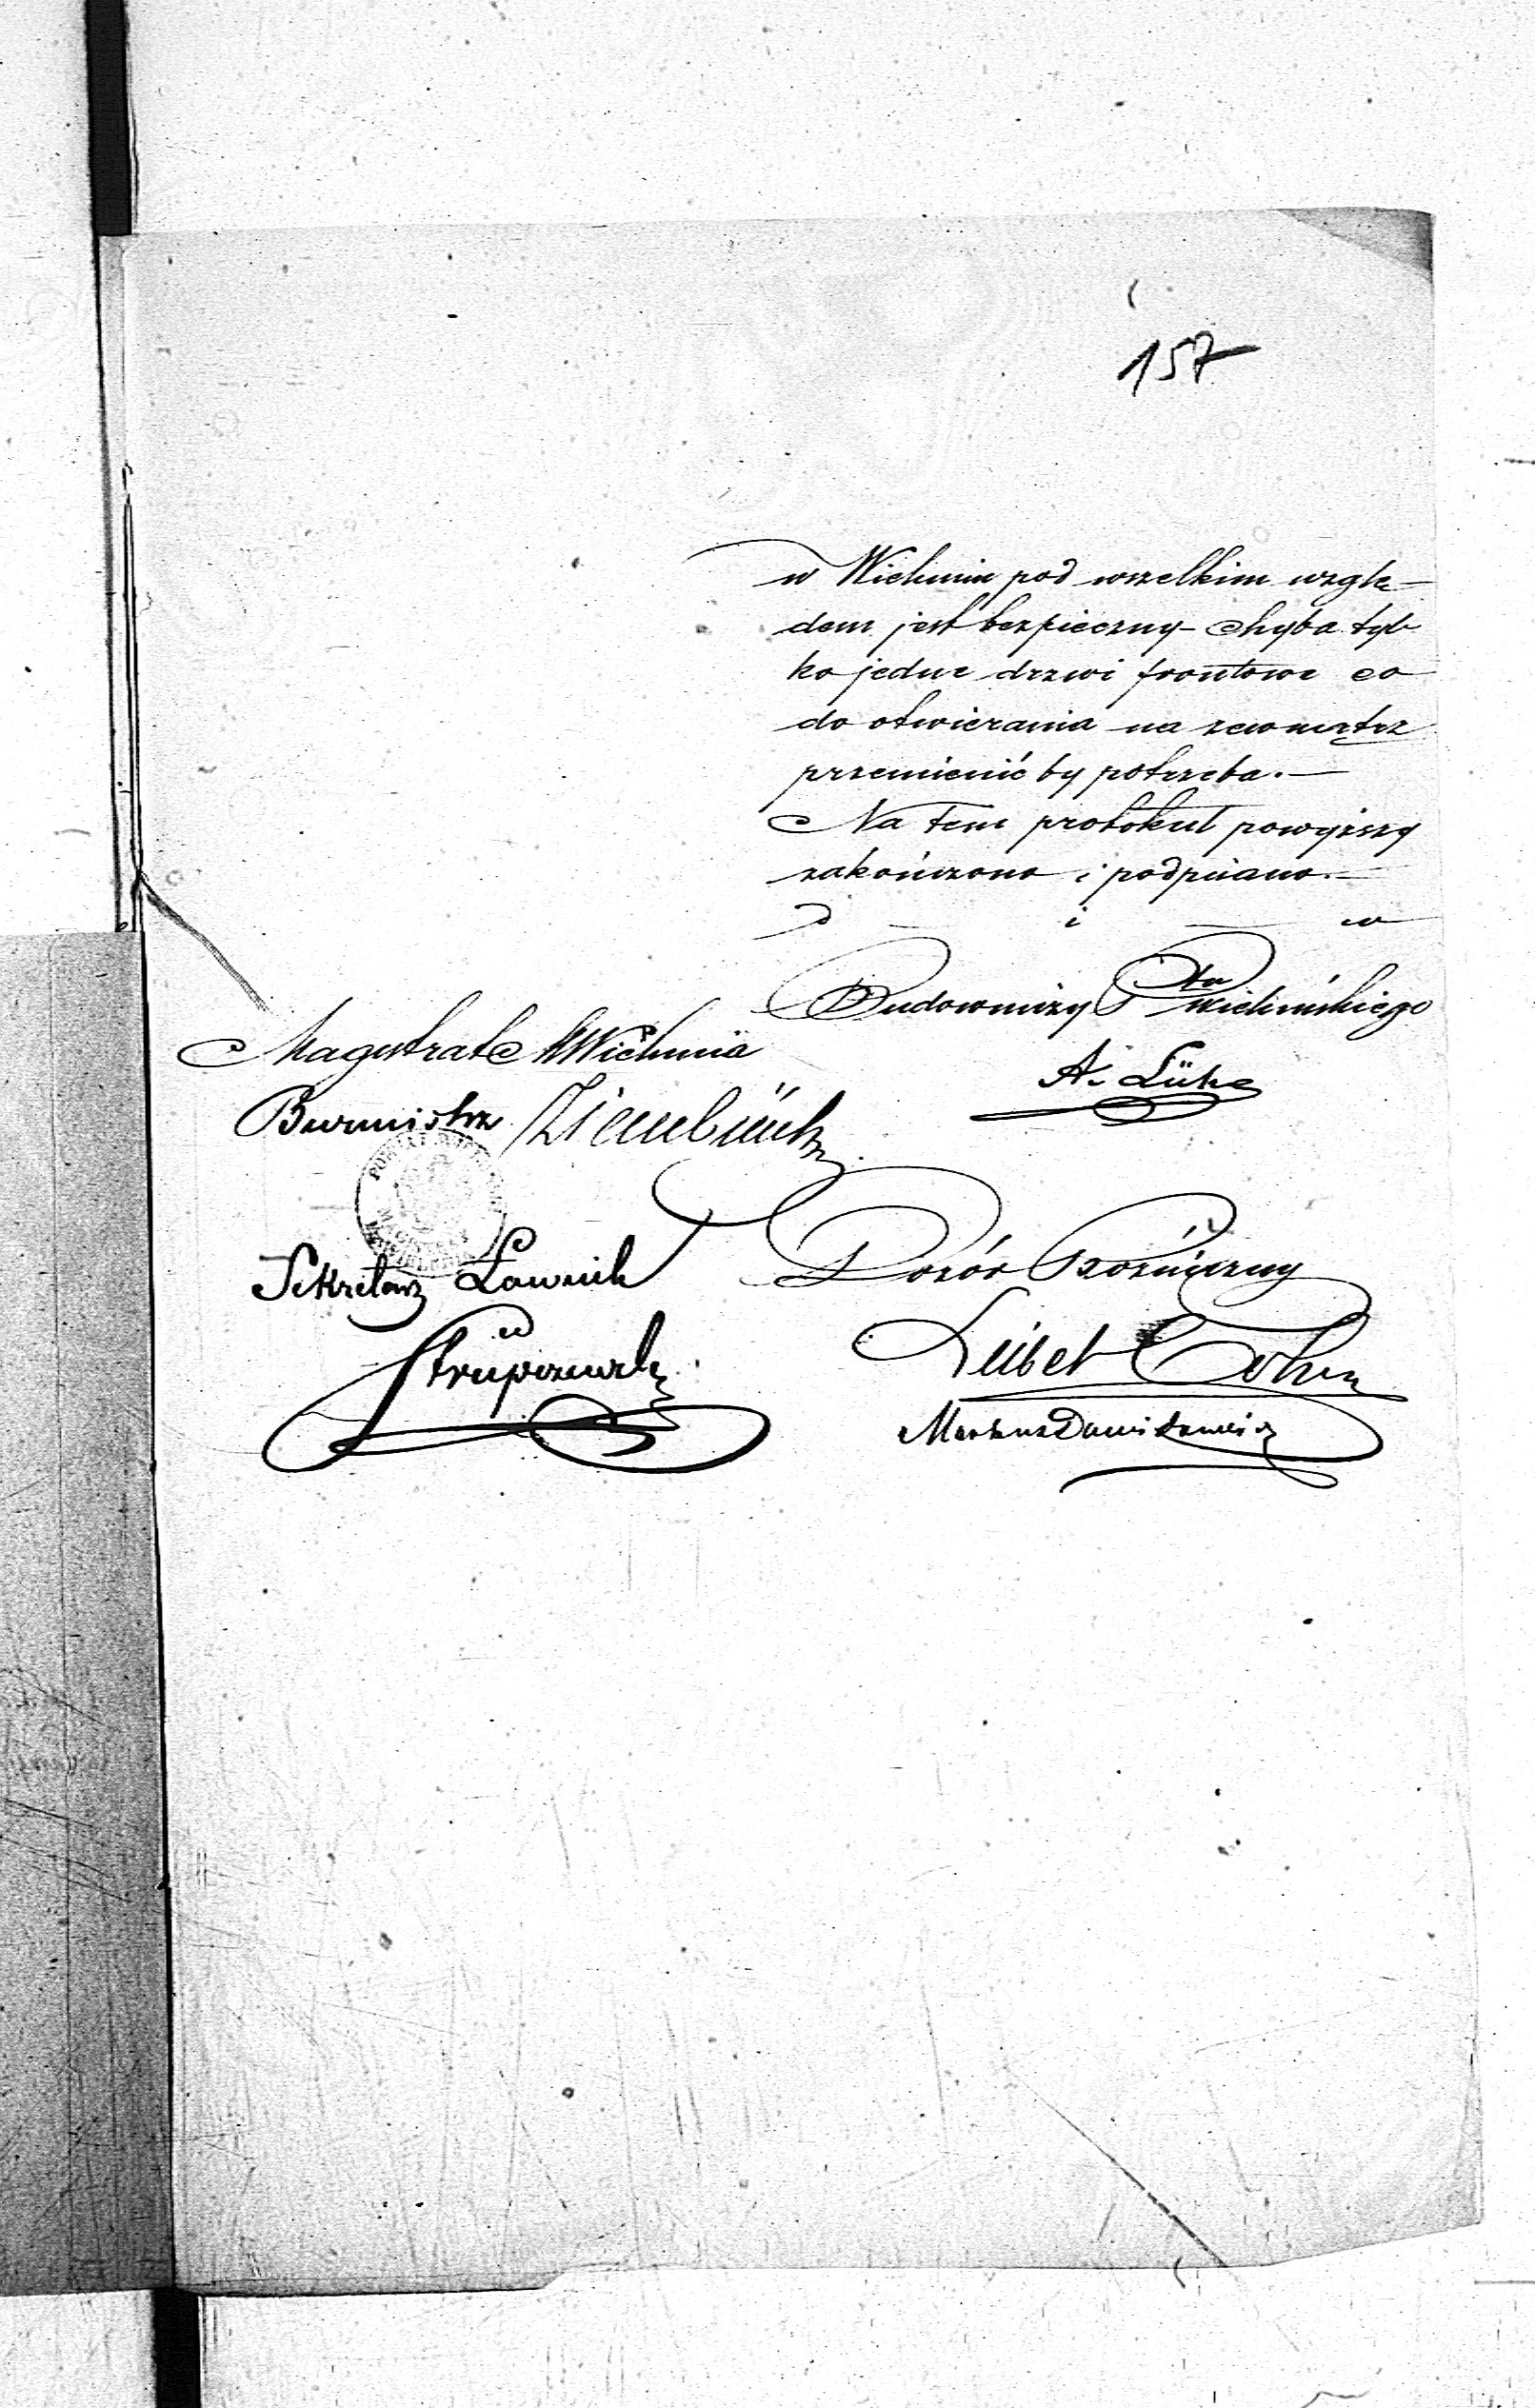 157
w Wieluniu pod wszelkim wzglę-
dem jest bezpieczny - chyba tyl-
ko jedne drzwi frontowe co
do otwierania na zewnątrz
przemienić by potrzeba. -
Na tem protokuł powyższy
zakończono i podpisano. -
d i w
Budowniczy Ptu Wieluńskiego
A. Lüke
Magistrat Wielunia
Burmistrz
Sekretarz Ławnik
Dozór Bożniczny
Leibel Cohn
Markus Dawidowicz